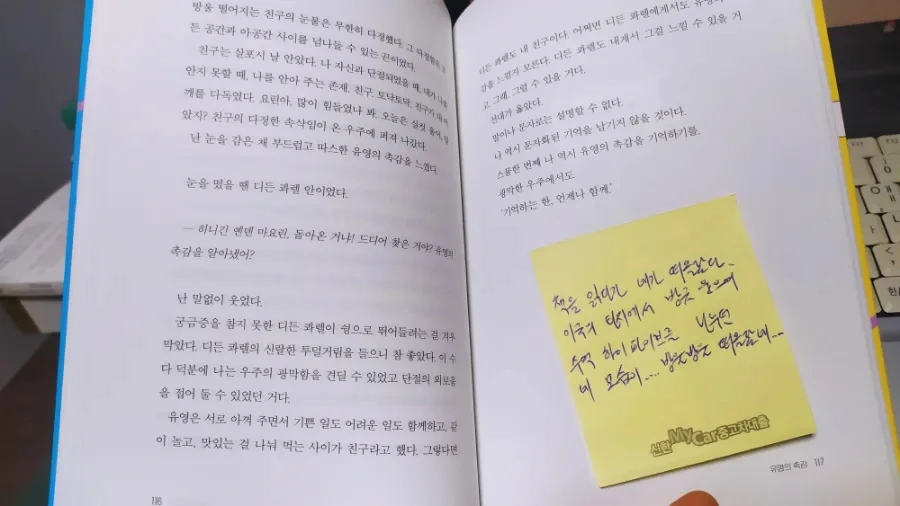 방울 떨어지는 친구의 눈물은 무한히 다정했다. 그 다정함은
든 공간과 아공간 사이를 넘나들 수 있는 끈이었다.
친구는 살포시 날 안았다. 나 자신과 단절되었을 때, 내가 나를
안지 못할 때, 나를 안아 주는 존재, 친구. 토닥토닥, 친구가 내
깨를 다독였다. 요린아, 많이 힘들었나 봐. 오늘은 실컷 울어,
았지? 친구의 다정한 속삭임이 온 우주에 퍼져 나갔다.
난 눈을 감은 채 부드럽고 따스한 유영의 촉감을 느꼈다.
눈을 떴을 땐 디든 콰렐 안이었다.
— 히니긴 옌덴 마요린, 돌아온 거냐! 드디어 찾은 거야? 유영의
촉감을 알아냈어?
난 말없이 웃었다.
궁금증을 참지 못한 디든 콰렐이 쉼으로 뛰어들려는 걸 겨우
막았다. 디든 콰렐의 신랄한 투덜거림을 들으니 참 좋았다. 이 수
다 덕분에 나는 우주의 광막함을 견딜 수 있었고 단절의 외로움
을 접어 둘 수 있었던 거다.
유영은 서로 아껴 주면서 기쁜 일도 어려운 일도 함께하고, 같
이 놀고, 맛있는 걸 나눠 먹는 사이가 친구라고 했다. 그렇다면
116
디든 콰렐도 내 친구이다. 어쩌면 디든 콰렐에게서도 유영의
감을 느낄지 모른다. 디든 콰렐도 내게서 그걸 느낄 수 있을 거
고. 그래, 그럴 수 있을 거다.
선대가 옳았다.
말이나 문자로는 설명할 수 없다.
나 역시 문자화된 기억을 남기지 않을 것이다.
스물한 번째 나 역시 유영의 촉감을 기억하기를.
광막한 우주에서도
'기억하는 한, 언제나 함께.'
책을 읽다가 네가 떠올랐다.
이국의 탑지에서 방긋 웃으며
수억 하이파이브를 나누던
네 모습이.... 방긋방긋 떠올랐네...
신한 My Car 중고차대출
유영의 촉감 117